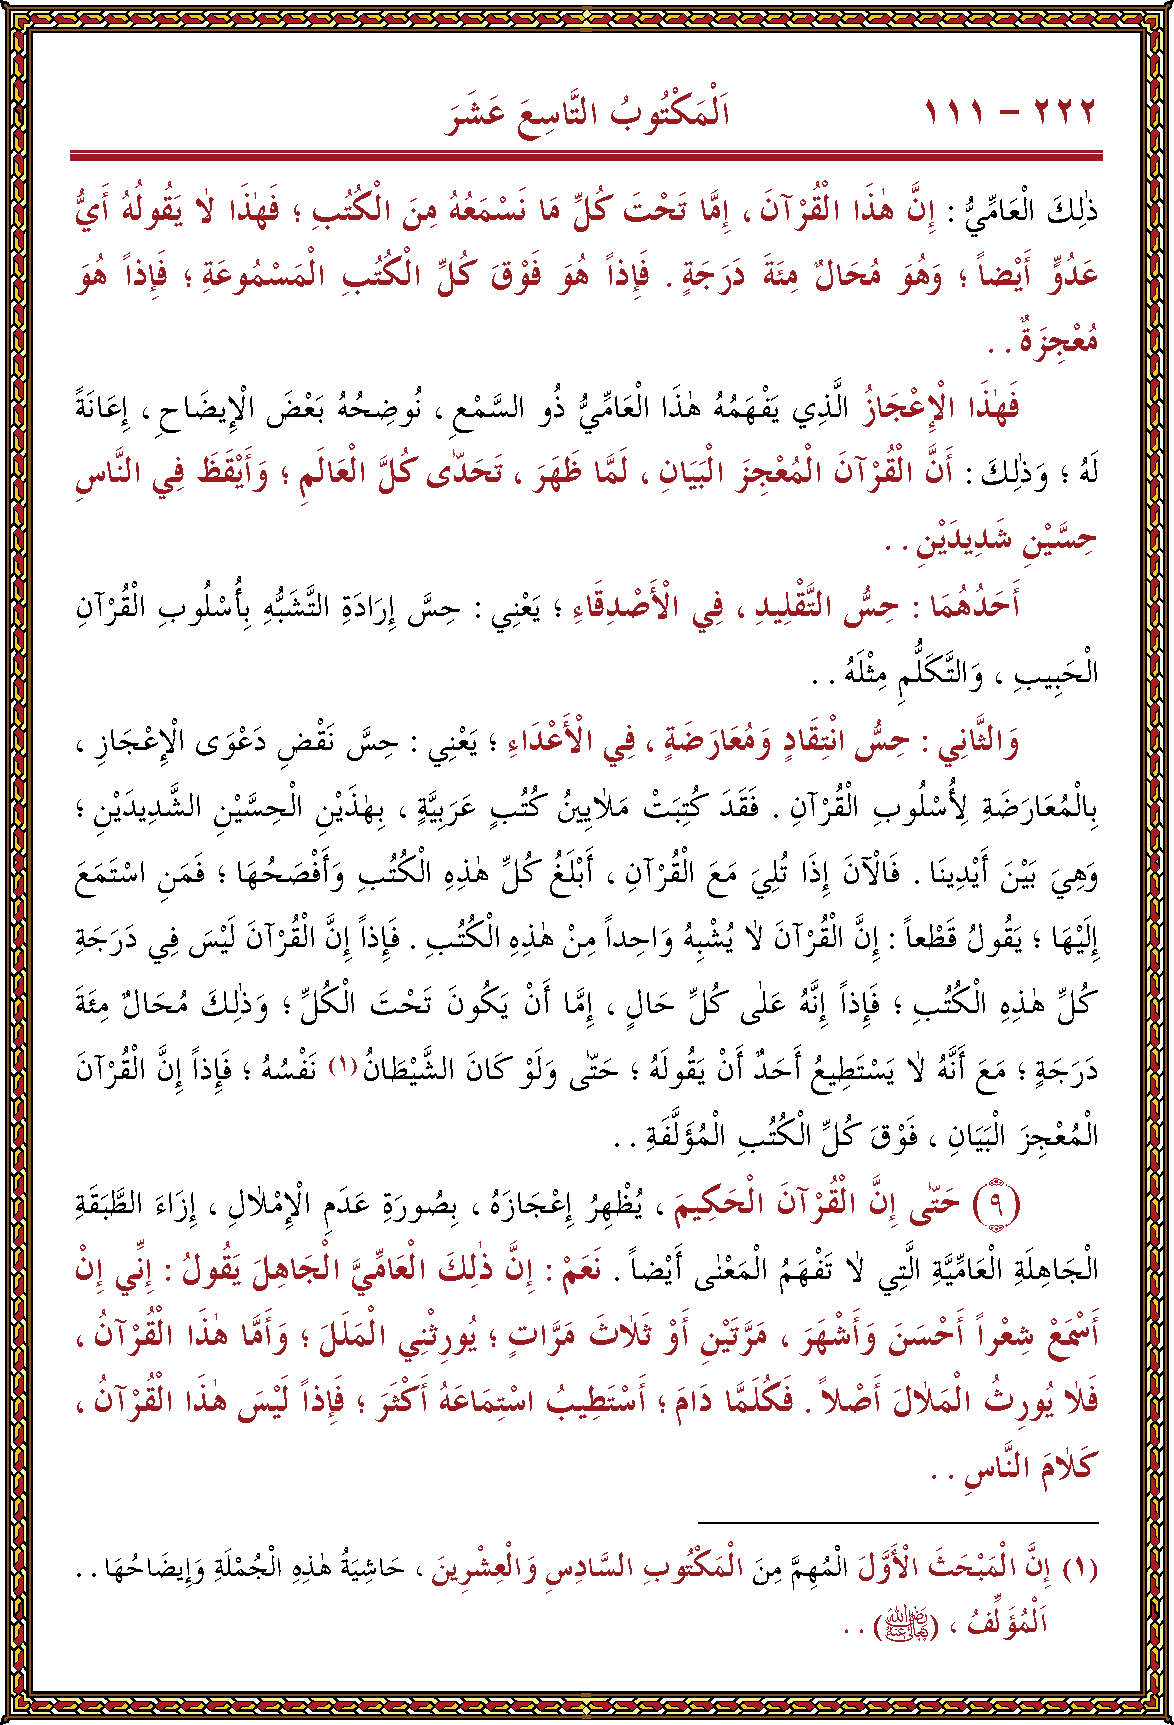 ٢٢٢ – ١١١ اَلْمَكْتُوبُ التَّاسِعَ عَشَرَ
ذٰلِكَ الْعَامِّيُّ : إِنَّ هٰذَا الْقُرْآنَ ، إِمَّا تَحْتَ كُلِّ مَا نَسْمَعُهُ مِنَ الْكُتُبِ ؛ فَهٰذَا لَا يَقُولُهُ أَيُّ
عَدُوٍّ أَيْضاً ؛ وَهُوَ مُحَالٌ مِئَةَ دَرَجَةٍ . فَإِذاً هُوَ فَوْقَ كُلِّ الْكُتُبِ الْمَسْمُوعَةِ ؛ فَإِذاً هُوَ
مُعْجِزَةٌ . .
فَهٰذَا الْإِعْجَازُ الَّذِي يَفْهَمُهُ هٰذَا الْعَامِّيُّ ذُو السَّمْعِ ، نُوضِحُهُ بَعْضَ الْإِيضَاحِ ، إِعَانَةً
لَهُ ؛ وَذٰلِكَ : أَنَّ الْقُرْآنَ الْمُعْجِزَ الْبَيَانِ ، لَمَّا ظَهَرَ ، تَحَدّٰى كُلَّ الْعَالَمِ ؛ وَأَيْقَظَ فِي النَّاسِ
حِسَّيْنِ شَدِيدَيْنِ . .
أَحَدُهُمَا : حِسُّ التَّقْلِيدِ ، فِي الْأَصْدِقَاءِ ؛ يَعْنِي : حِسَّ إِرَادَةِ التَّشَبُّهِ بِأُسْلُوبِ الْقُرْآنِ
الْحَبِيبِ ، وَالتَّكَلُّمِ مِثْلَهُ . .
وَالثَّانِي : حِسُّ انْتِقَادٍ وَمُعَارَضَةٍ ، فِي الْأَعْدَاءِ ؛ يَعْنِي : حِسَّ نَقْضِ دَعْوَى الْإِعْجَازِ ،
بِالْمُعَارَضَةِ لِأُسْلُوبِ الْقُرْآنِ . فَقَدَ كُتِبَتْ مَلَايِينُ كُتُبٍ عَرَبِيَّةٍ ، بِهٰذَيْنِ الْحِسَّيْنِ الشَّدِيدَيْنِ ؛
وَهِيَ بَيْنَ أَيْدِينَا . فَالْآنَ إِذَا تُلِيَ مَعَ الْقُرْآنِ ، أَبْلَغُ كُلِّ هٰذِهِ الْكُتُبِ وَأَفْصَحُهَا ؛ فَمَنِ اسْتَمَعَ
إِلَيْهَا ؛ يَقُولُ قَطْعاً : إِنَّ الْقُرْآنَ لَا يُشْبِهُ وَاحِداً مِنْ هٰذِهِ الْكُتُبِ . فَإِذاً إِنَّ الْقُرْآنَ لَيْسَ فِي دَرَجَةِ
كُلِّ هٰذِهِ الْكُتُبِ ؛ فَإِذاً إِنَّهُ عَلٰى كُلِّ حَالٍ ، إِمَّا أَنْ يَكُونَ تَحْتَ الْكُلِّ ؛ وَذٰلِكَ مُحَالٌ مِئَةَ
دَرَجَةٍ ؛ مَعَ أَنَّهُ لَا يَسْتَطِيعُ أَحَدٌ أَنْ يَقُولَهُ ؛ حَتّٰى وَلَوْ كَانَ الشَّيْطَانُ(١) نَفْسُهُ ؛ فَإِذاً إِنَّ الْقُرْآنَ
الْمُعْجِزَ الْبَيَانِ ، فَوْقَ كُلِّ الْكُتُبِ الْمُؤَلَّفَةِ . .
(٩) حَتّٰى إِنَّ الْقُرْآنَ الْحَكِيمَ ، يُظْهِرُ إِعْجَازَهُ ، بِصُورَةِ عَدَمِ الْإِمْلَالِ ، إِزَاءَ الطَّبَقَةِ
الْجَاهِلَةِ الْعَامِّيَّةِ الَّتِي لَا تَفْهَمُ الْمَعْنٰى أَيْضاً . نَعَمْ : إِنَّ ذٰلِكَ الْعَامِّيَّ الْجَاهِلَ يَقُولُ : إِنِّي إِنْ
أَسْمَعْ شِعْراً أَحْسَنَ وَأَشْهَرَ ، مَرَّتَيْنِ أَوْ ثَلَاثَ مَرَّاتٍ ؛ يُورِثْنِي الْمَلَلَ ؛ وَأَمَّا هٰذَا الْقُرْآنُ ،
فَلَا يُورِثُ الْمَلَالَ أَصْلاً . فَكُلَّمَا دَامَ ؛ أَسْتَطِيبُ اسْتِمَاعَهُ أَكْثَرَ ؛ فَإِذاً لَيْسَ هٰذَا الْقُرْآنُ ،
كَلَامَ النَّاسِ . .
(١) إِنَّ الْمَبْحَثَ الْأَوَّلَ الْمُهِمَّ مِنَ الْمَكْتُوبِ السَّادِسِ وَالْعِشْرِينَ ، حَاشِيَةُ هٰذِهِ الْجُمْلَةِ وَإِيضَاحُهَا . .
اَلْمُؤَلِّفُ ، (رضي الله تعالى عنه) . .